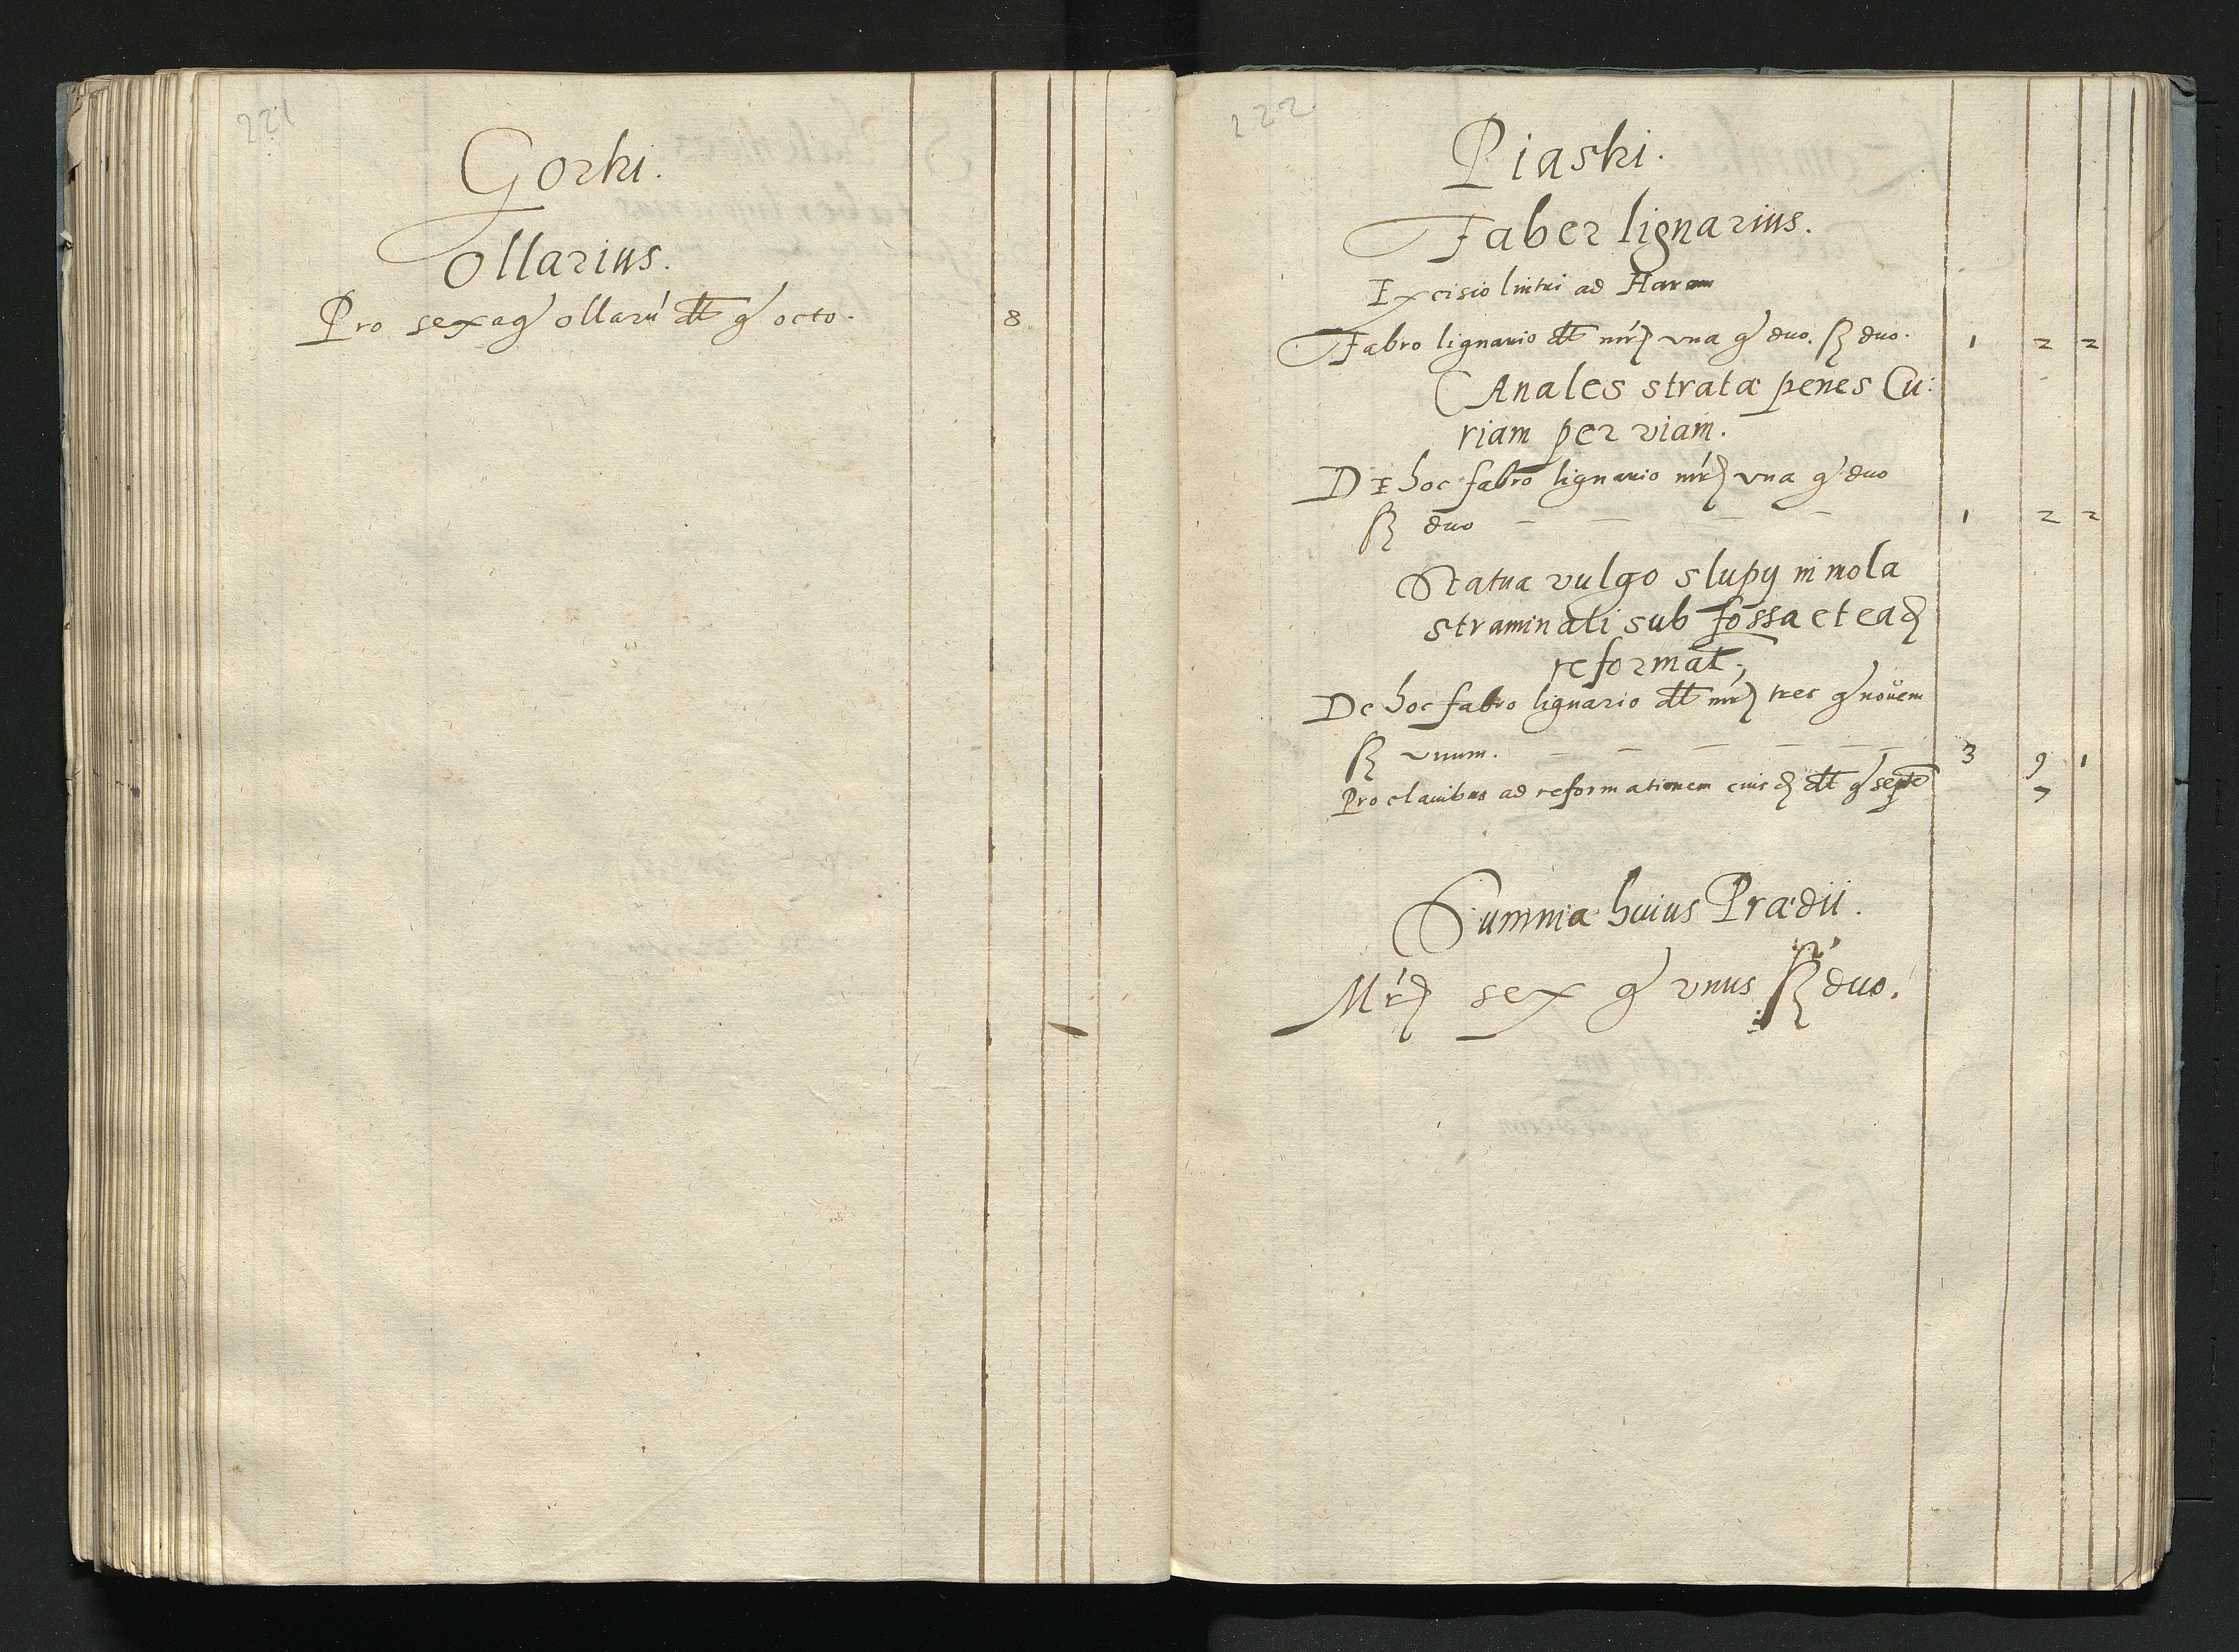 221
Gorki.
Ollarius.
Pro sexag ollarū dt g octo. 8
222
Piaski.
Faber lignarius.
Excisio lintri ad Haram
Fabro lignario dt mrc una g duo. ß duo. 1 2 2
CAnales stratæ penes Cu:
riam per viam.
DE hoc fabro lignario mrc una g duo
ß duo – – – – 1 2 2
Statua vulgo slupy in mola
straminali sub fossa et ead
reformat;
De hoc fabro lignario dt mrc tres g novem
ß unum. – – – – – 3 9 1
Pro clavibus ad reformationem eiusd dt g septē 7
Summa huius Prædii.
Mrc sex g unus ß duo.